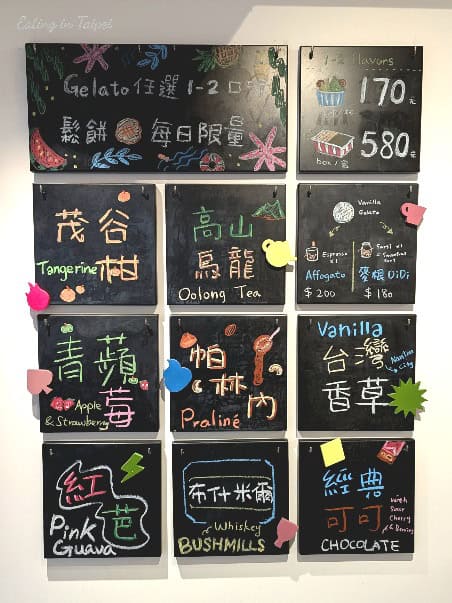 Eating in Taipei
Gelato 任選 1-2 口味
鬆餅 每日限量
1-2 flavors
170元
box/盒 580元
茂谷
柑
Tangerine
高山
烏龍
Oolong Tea
Vanilla
Gelato
Espresso
x1
Affogato
$200
麥根DiDi
$180
青蘋
莓
Apple
& Strawberry
帕
林內
Praliné
Vanilla
台灣
香草
Nantou
City
紅
芭
Pink
Guava
布什米爾
Whiskey
BUSHMILLS
經典
可可
with
Sour
Cherry
& Berries
CHOCOLATE